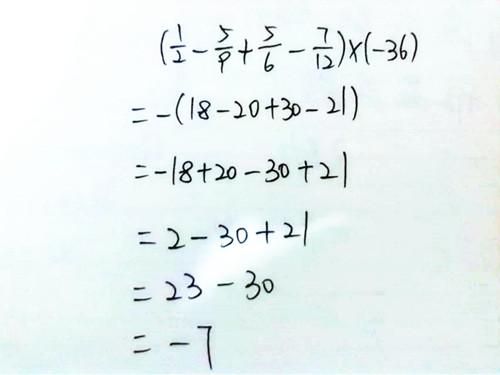 (1/2 − 5/9 + 5/6 − 7/12)×(−36)
= −(18−20+30−21)
= −18+20−30+21
= 2−30+21
= 23−30
= −7